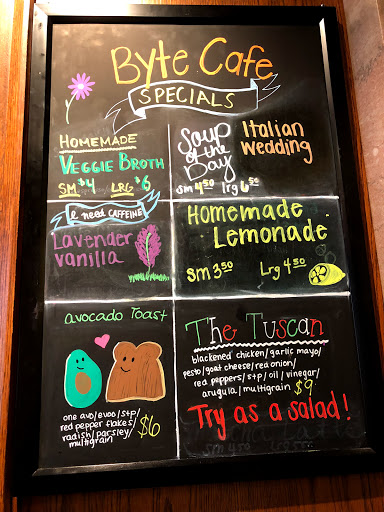 Byte Cafe
SPECIALS
HOMEMADE
VEGGIE BROTH
SM $4 LRG $6
Soup
of the
Day
Italian
wedding
sm 4.50 lrg 6.50
I need CAFFEINE
Lavender
vanilla
Homemade
Lemonade
Sm 3.50 Lrg 4.50
avocado Toast
one avo/evoo/s+p/
red pepper flakes/
radish/parsley/
multigrain
$6
The Tuscan
blackened chicken/garlic mayo/
pesto/goat cheese/red onion/
red peppers/s+p/oil/vinegar/
arugula/multigrain $9
Try as a salad!